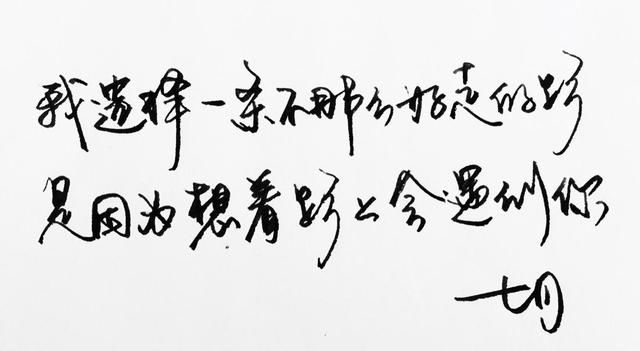 我选择一条不那么好走的路
是因为想着路上会遇到你
七月